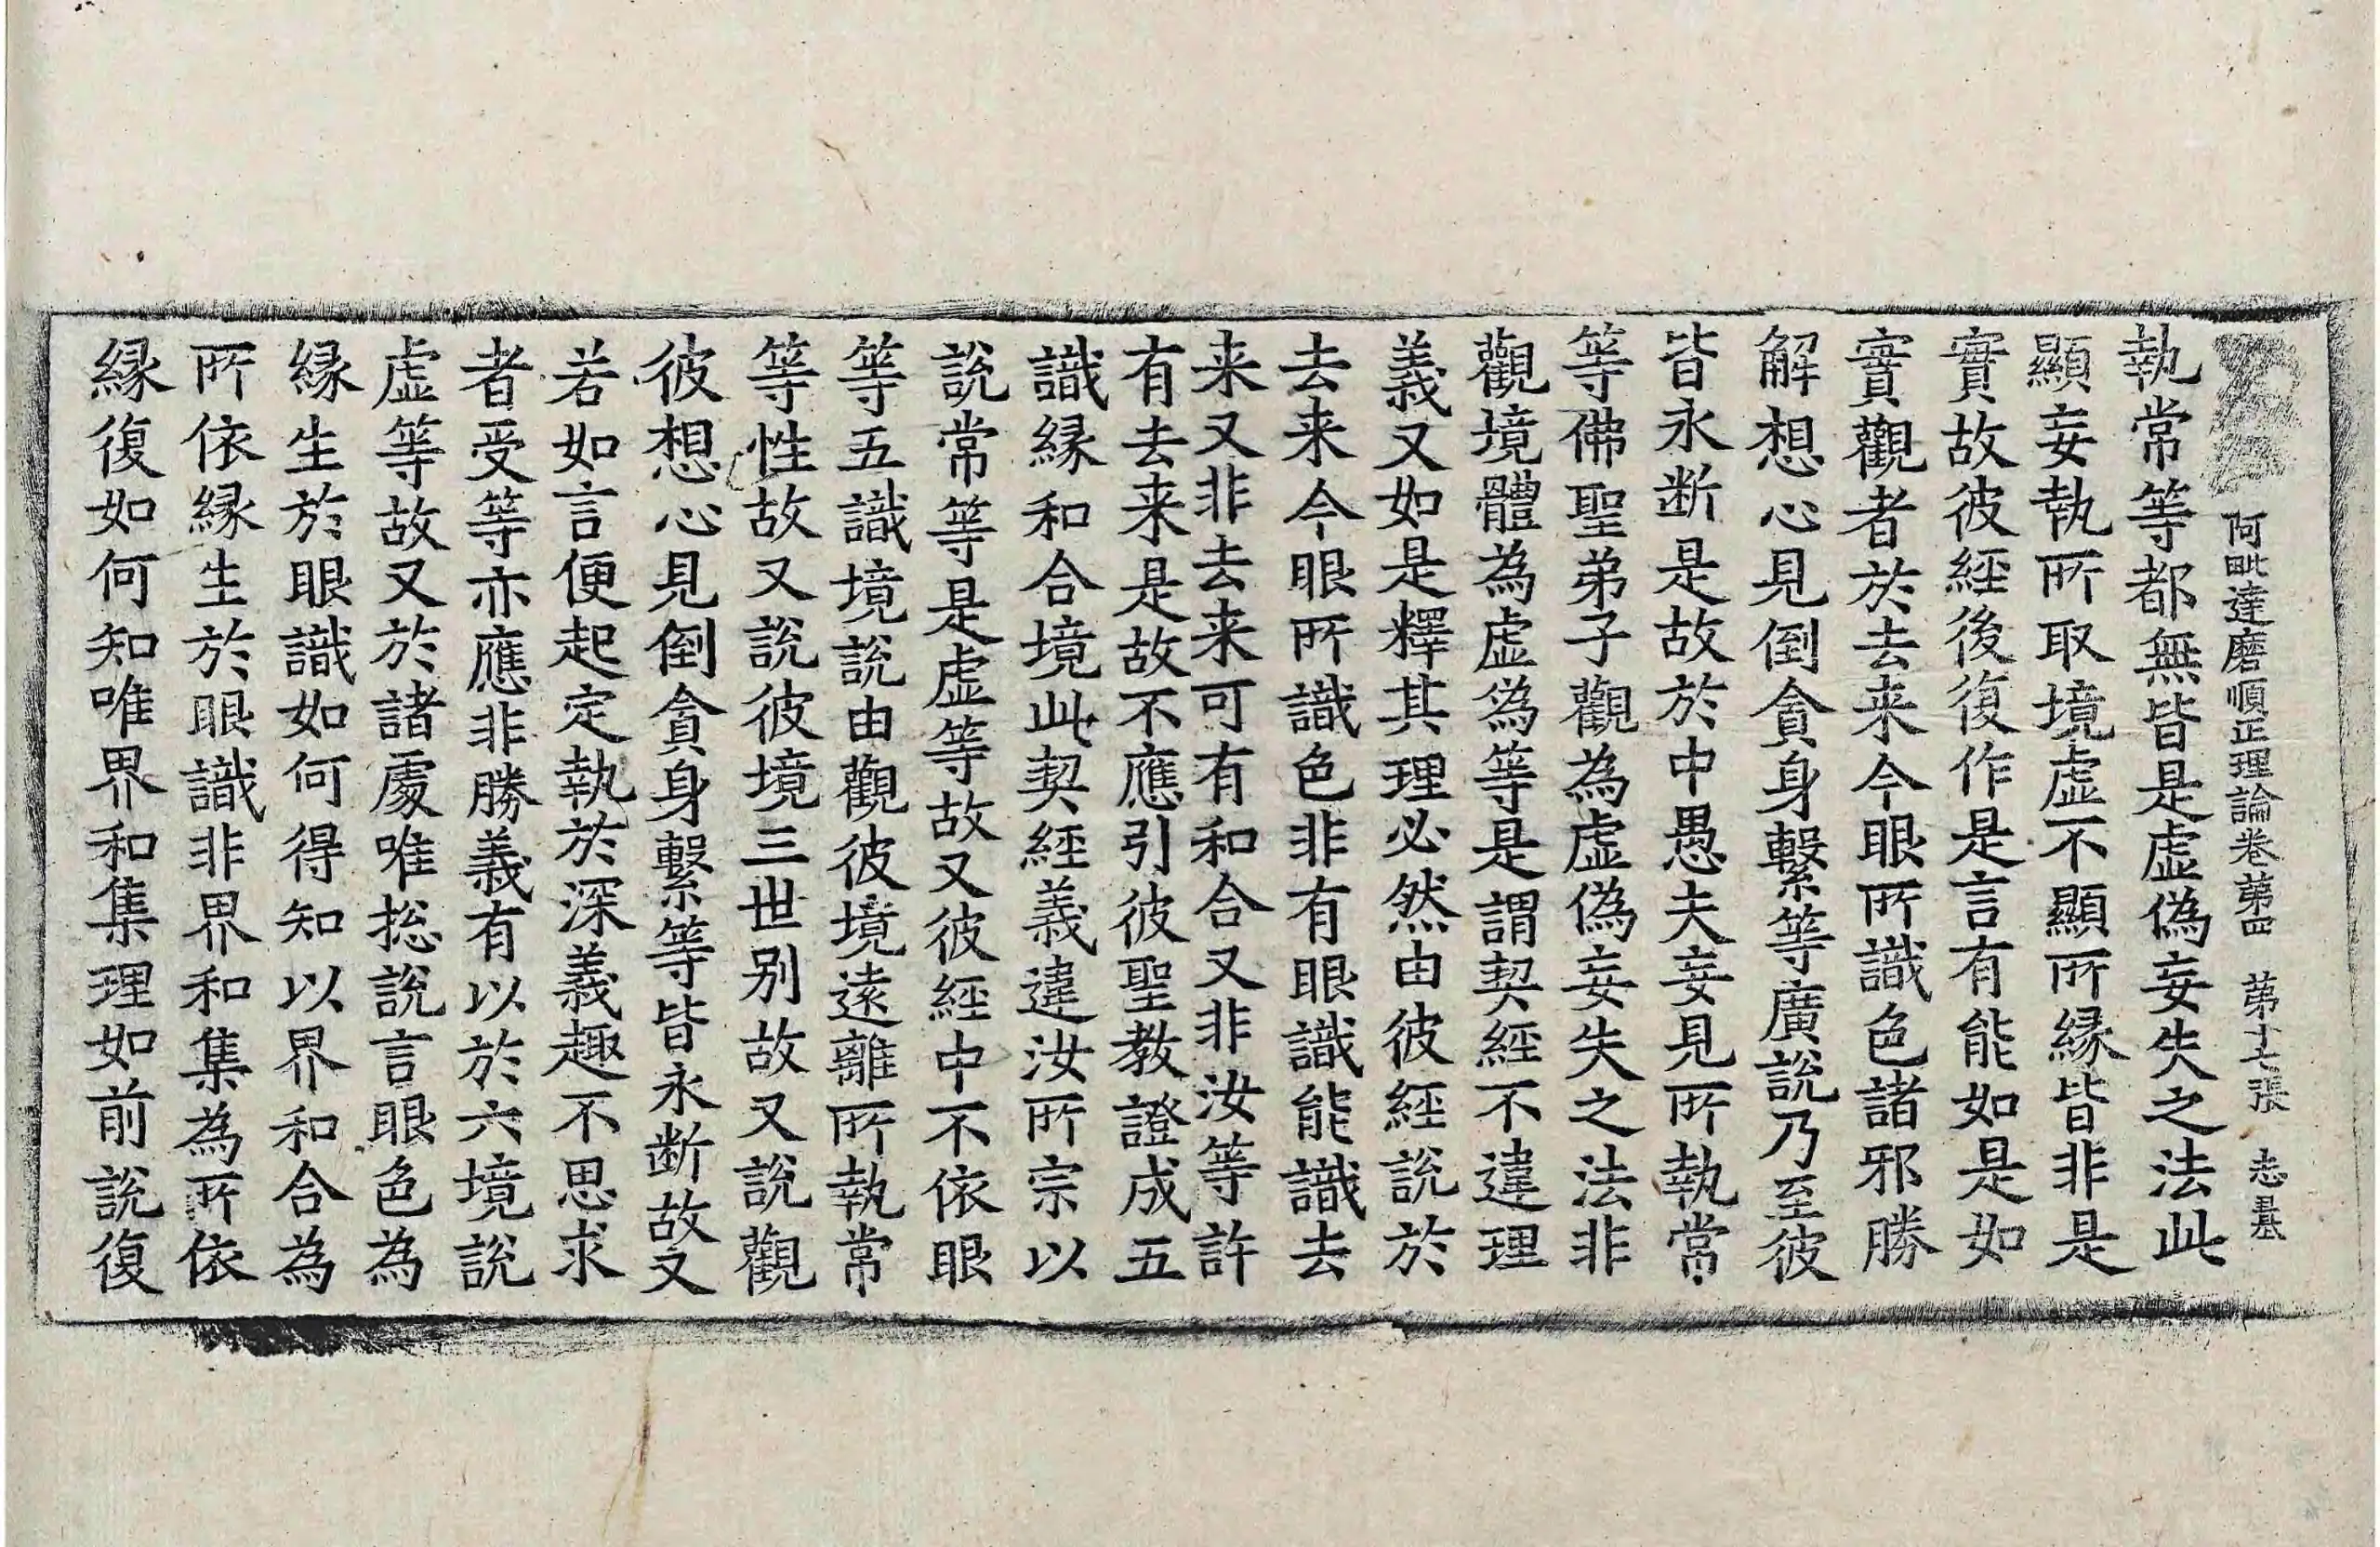 阿毗達磨順正理論卷苐四 苐十七張 志碁
執常等都無皆是虛偽妄失之法此
顯妄執所取境虛不顯所緣皆非是
實故彼經後復作是言有能如是如
實觀者於去来今眼所識色諸邪勝
解想心見倒貪身繫等廣說乃至彼
皆永断是故於中愚夫妄見所執常
等佛聖弟子觀為虛偽妄失之法非
觀境體為虛偽等是謂契經不違理
義又如是釋其理必然由彼經說於
去来今眼所識色非有眼識能識去
来又非去来可有和合又非汝等許
有去来是故不應引彼聖教證成五
識緣和合境此契經義違汝所宗以
說常等是虛等故又彼經中不依眼
等五識境說由觀彼境遠離所執常
等性故又說彼境三世别故又說觀
彼想心見倒貪身繫等皆永断故又
若如言便起定執於深義趣不思求
者受等亦應非勝義有以於六境說
虛等故又於諸處唯捴說言眼色為
緣生於眼識如何得知以界和合為
所依緣生於眼識非界和集為所依
緣復如何知唯界和集理如前說復